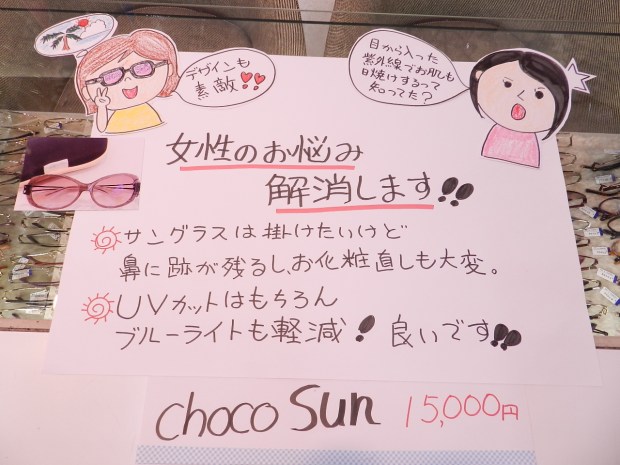 デザインも
素敵
目から入った
紫外線でお肌も
日焼けするって
知ってた？
女性のお悩み
解消します!!
サングラスは掛けたいけど
鼻に跡が残るし、お化粧直しも大変。
UVカットはもちろん
ブルーライトも軽減! 良いです!!
choco Sun 15,000円